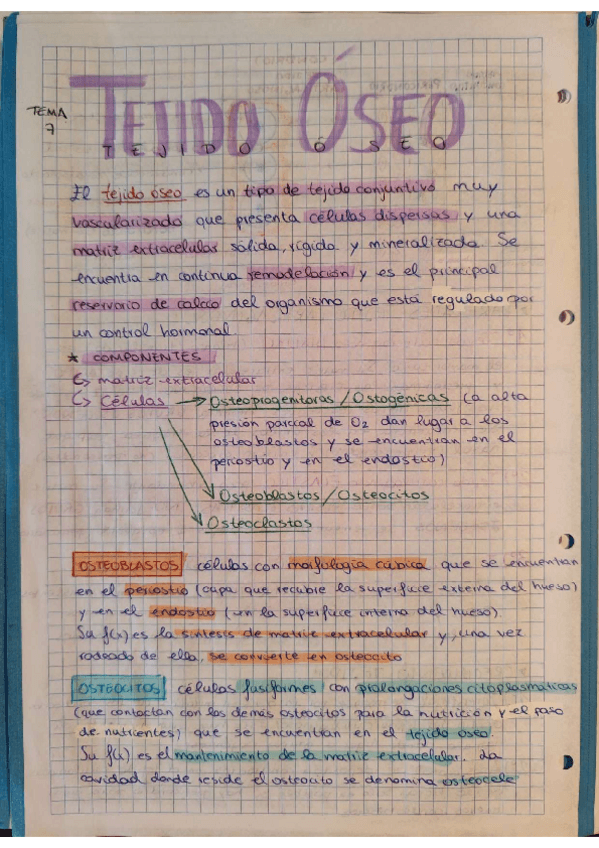 TEMA
7
TEJIDO ÓSEO
TEJIDO ÓSEO
El tejido óseo es un tipo de tejido conjuntivo muy
vascularizado que presenta células dispersas y una
matriz extracelular sólida, rígida y mineralizada. Se
encuentra en continua remodelación y es el principal
reservorio de calcio del organismo que está regulado por
un control hormonal.
* COMPONENTES
↳ matriz extracelular
↳ Células → Osteoprogenitoras / Ostogénicas (a alta
presión parcial de O₂ dan lugar a los
osteoblastos y se encuentran en el
periostio y en el endostio)
Osteoblastos / Osteocitos
Osteoclastos
OSTEOBLASTOS células con morfología cúbica que se encuentran
en el periostio (capa que recubre la superficie externa del hueso)
y en el endostio (en la superficie interna del hueso).
Su f(x) es la síntesis de matriz extracelular y, una vez
rodeado de ella, se convierte en osteocito
OSTEOCITOS células fusiformes con prolongaciones citoplasmáticas
(que contactan con los demás osteocitos para la nutrición y el paso
de nutrientes) que se encuentran en el tejido óseo.
Su f(x) es el mantenimiento de la matriz extracelular. La
cavidad donde reside el osteocito se denomina osteocele